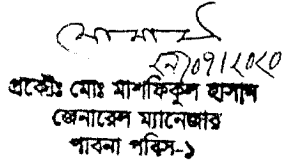 ২৭/০৭/২০২০
প্রকৌঃ মোঃ মাশফিকুল হাসান
জেনারেল ম্যানেজার
পাবনা পবিস-১